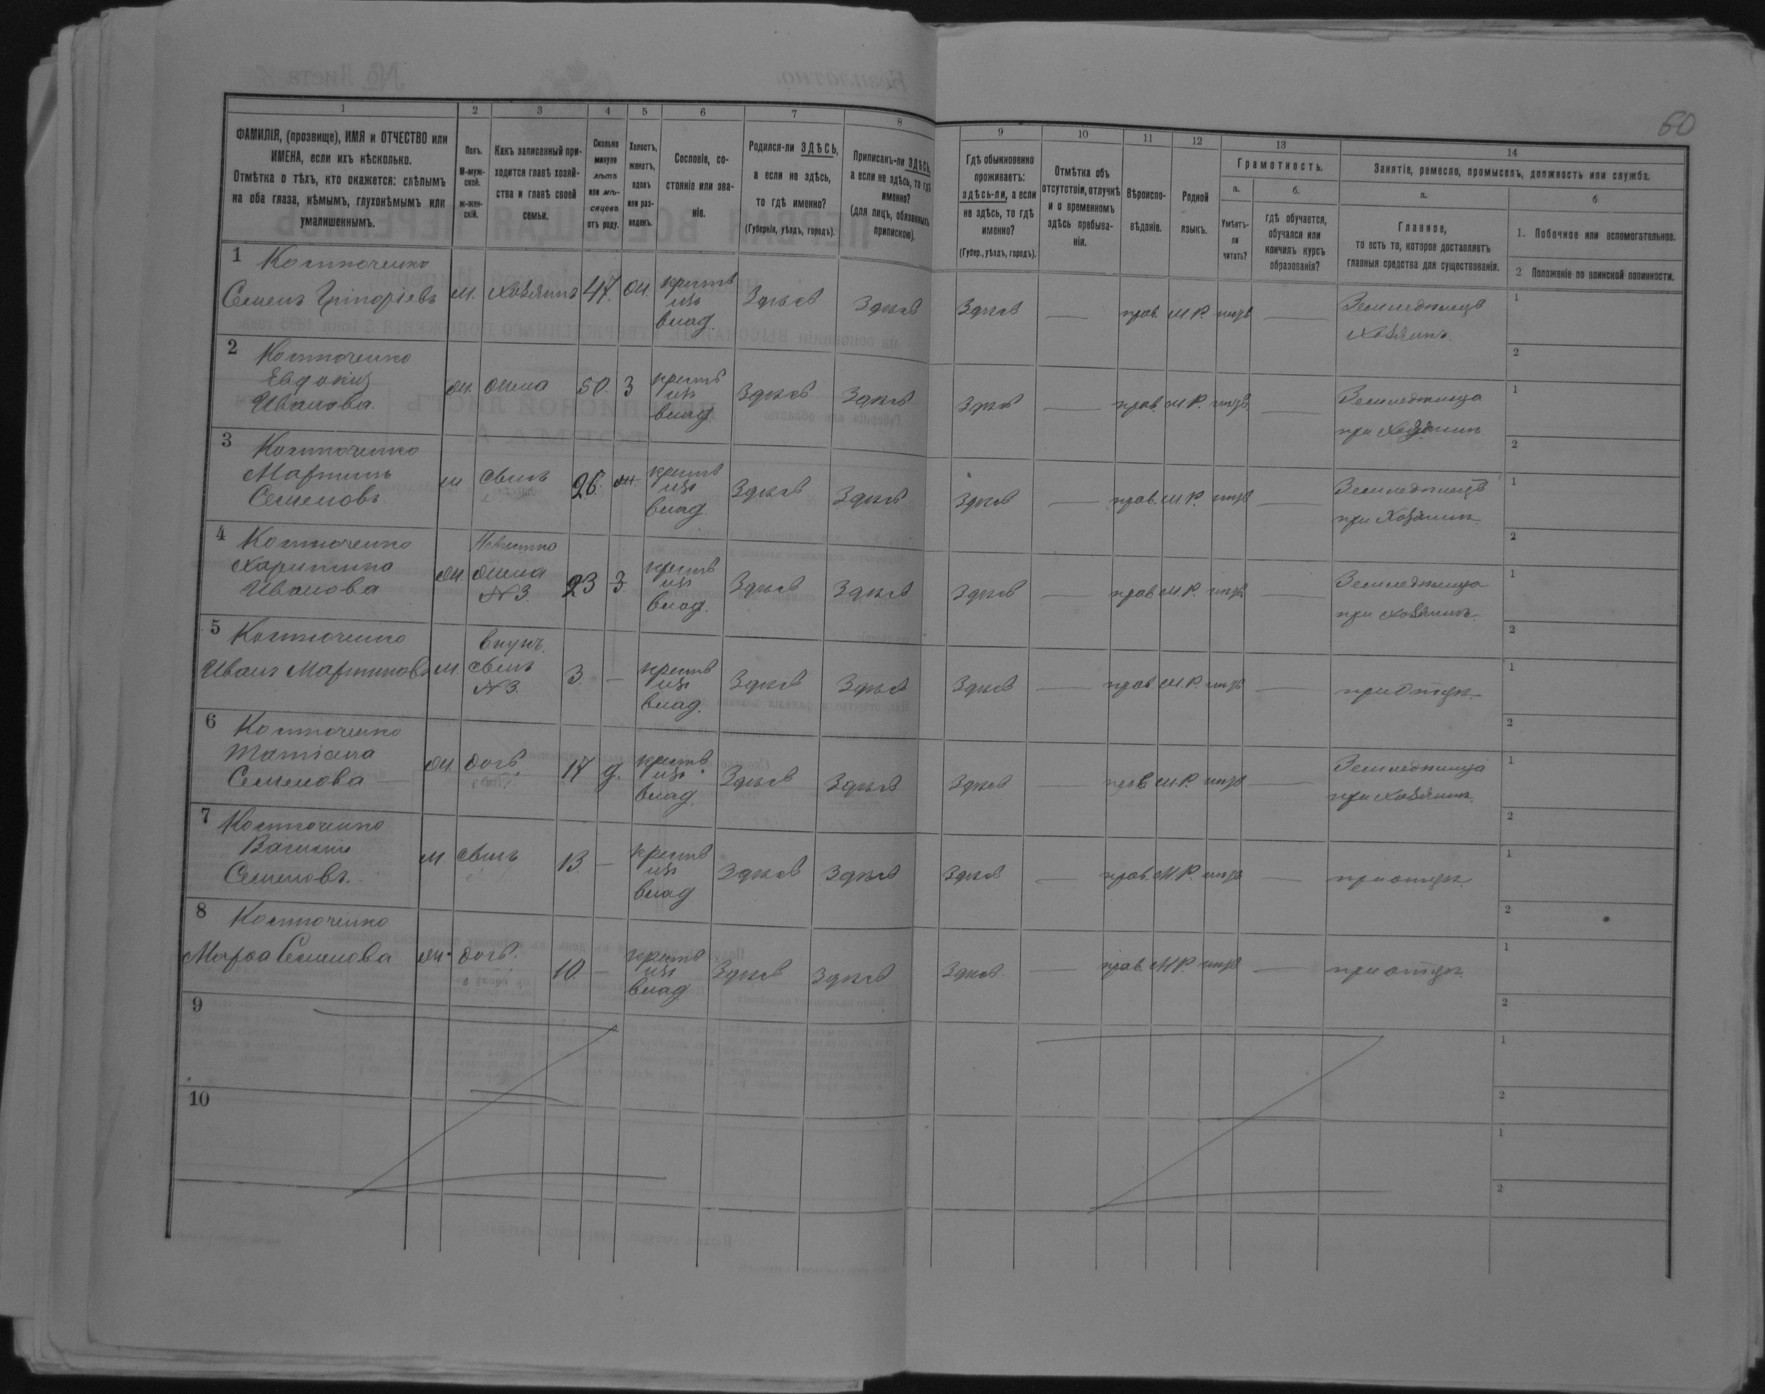 60
1 2 3 4 5 6 7 8 9 10 11 12 13 14
ФАМИЛІЯ, (прозвище), ИМЯ и ОТЧЕСТВО или
ИМЕНА, если ихъ нѣсколько.
Отмѣтка о тѣхъ, кто окажется: слѣпымъ
на оба глаза, нѣмымъ, глухонѣмымъ или
умалишеннымъ.
Полъ.
М-муж-
ской.
Ж-жен-
скій.
Какъ записанный при-
ходится главѣ хозяй-
ства и главѣ своей
семьи.
Сколько
минуло
лѣтъ
или мѣ-
сяцевъ
отъ роду.
Холостъ,
женатъ,
вдовъ
или раз-
веденъ.
Сословіе, со-
стояніе или зва-
ніе.
Родился-ли ЗДѢСЬ,
а если не здѣсь,
то гдѣ именно?
(Губернія, уѣздъ, городъ).
Приписанъ-ли ЗДѢСЬ,
а если не здѣсь, то гдѣ
именно?
(для лицъ, обязанныхъ
припискою).
Гдѣ обыкновенно
проживаетъ:
здѣсь-ли, а если
не здѣсь, то гдѣ
именно?
(Губер., уѣздъ, городъ).
Отмѣтка объ
отсутствіи, отлучкѣ
и о временномъ
здѣсь пребыва-
ніи.
Вѣроиспо-
вѣданіе.
Родной
языкъ.
Грамотность.
а.
Умѣетъ-
ли
читать?
б.
гдѣ обучается,
обучался или
кончилъ курсъ
образованія?
Занятіе, ремесло, промыселъ, должность или служба.
а.
Главное,
то есть то, которое доставляетъ
главныя средства для существованія.
б
1. Побочное или вспомогательное.
2 Положеніе по воинской повинности.
1 Костюченко
Семенъ Григоріевъ м. хозяинъ 47. ж. крестъ
изъ
влад. Здѣсь Здѣсь Здѣсь — прав. М.Р. нѣтъ — Земледѣлецъ
хозяинъ. 1
2
2 Костюченко
Евдокія
Иванова. ж. жена 50. З крестъ
изъ
влад. Здѣсь Здѣсь Здѣсь — прав. М.Р. нѣтъ — Земледѣлица
при хозяинѣ 1
2
3 Костюченко
Мартинъ
Семеновъ м сынъ 26. ж. крестъ
изъ
влад. Здѣсь Здѣсь Здѣсь — прав. М.Р. нѣтъ — Земледѣлецъ
при хозяинѣ. 1
2
4 Костюченко
Харитина
Иванова ж Невѣстка
жена
№3. 23 З крестъ
изъ
влад. Здѣсь Здѣсь Здѣсь — прав. М.Р. нѣтъ — Земледѣлица
при хозяинѣ. 1
2
5 Костюченко
Иванъ Мартиновъ м. внукъ.
сынъ
№3. 3. — крестъ
изъ
влад. Здѣсь Здѣсь Здѣсь — прав. М.Р. нѣтъ — при отцѣ. 1
2
6 Костюченко
Татіана
Семенова ж. дочь. 17 д. крестъ
изъ
влад. Здѣсь Здѣсь Здѣсь — прав. М.Р. нѣтъ — Земледѣлица
при хозяинѣ. 1
2
7 Костюченко
Василій
Семеновъ. м. сынъ 13. — крестъ
изъ
влад Здѣсь Здѣсь Здѣсь — прав. М.Р. нѣтъ — при отцѣ. 1
2
8 Костюченко
Марѳа Семенова ж. дочь. 10 — крестъ
изъ
влад Здѣсь Здѣсь Здѣсь — прав. М.Р. нѣтъ — при отцѣ. 1
2
9 1
2
10 1
2